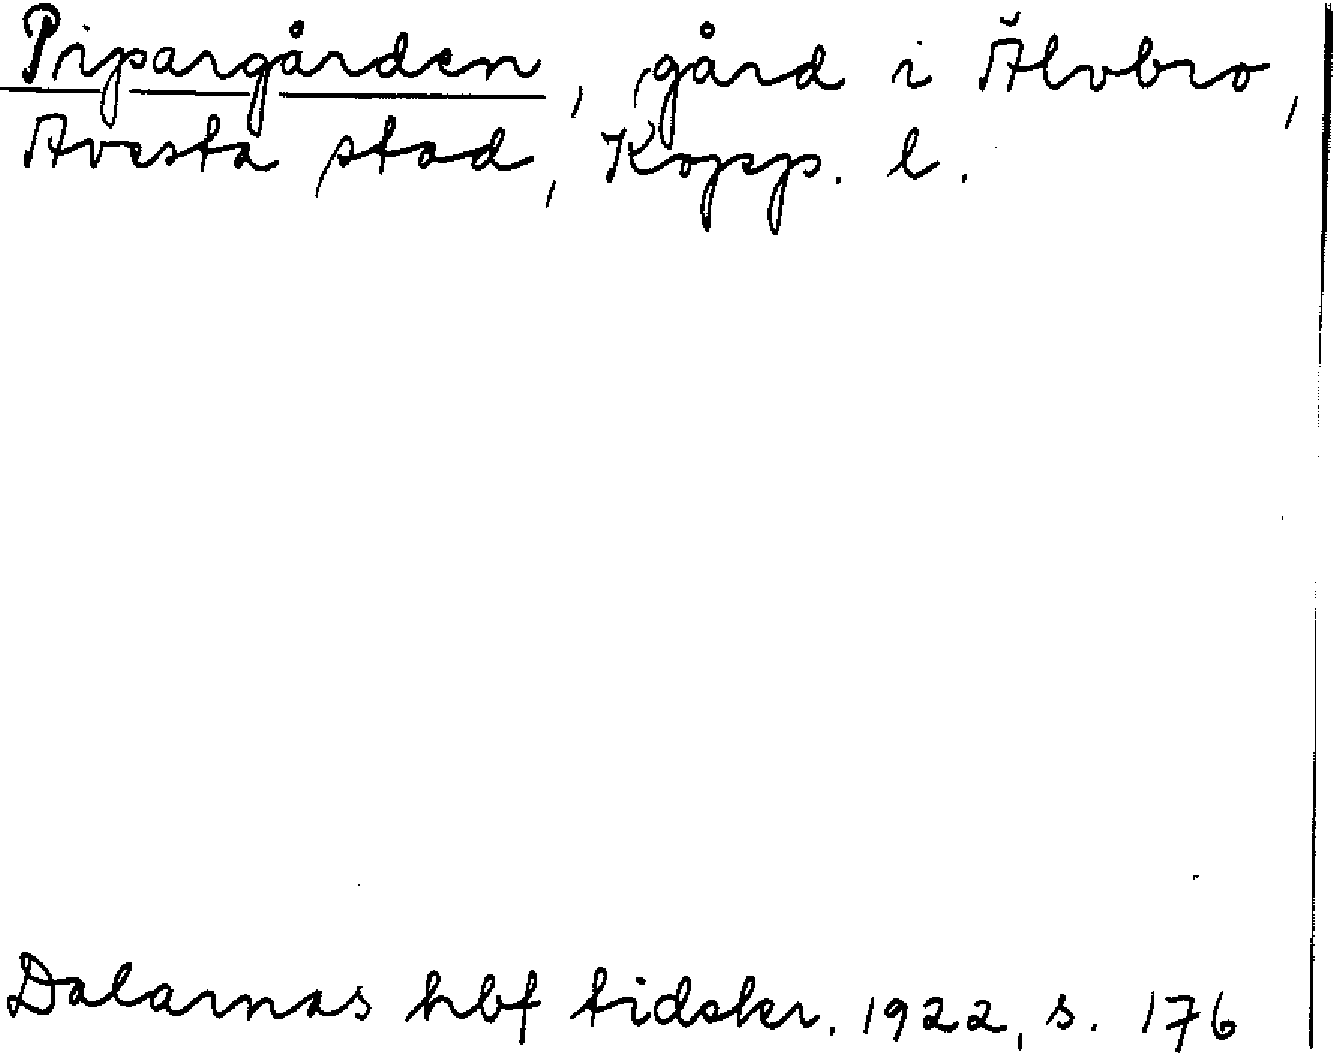 Pipargården, gård i Älvbro,
Avesta stad, Kopp. l.
Dalarnas hbf tidskr. 1922, s. 176